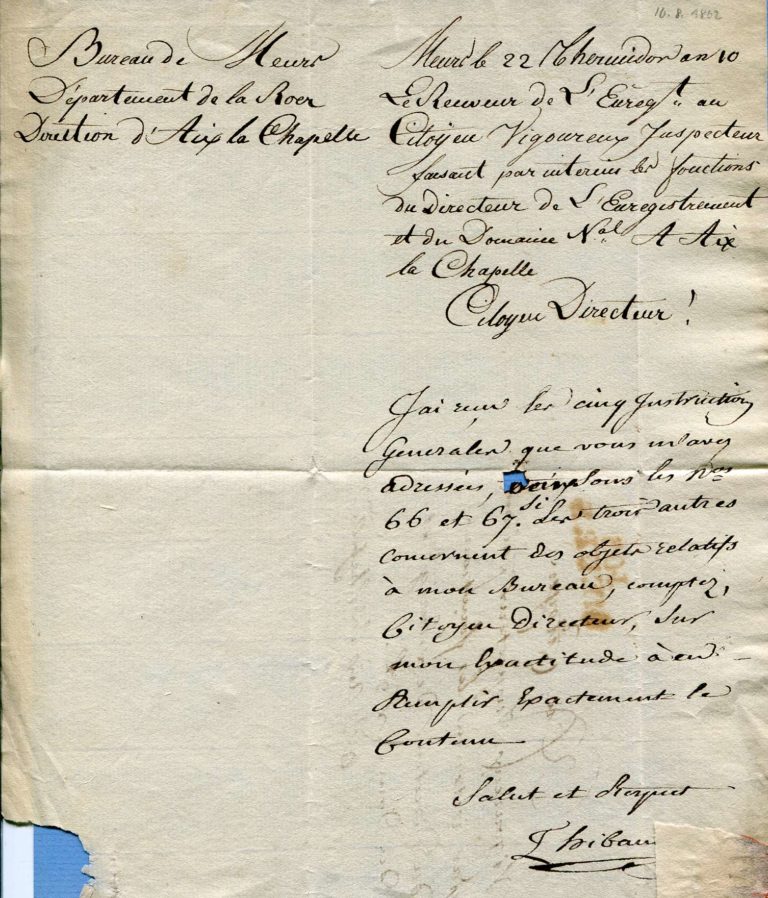 16.8.1802
Bureau de Meurs
Département de la Roer
Direction d'Aix la Chapelle
Meurs le 22 Thermidor an 10
Le Receveur de L'Enreg.t au
Citoyen Vigoureux Inspecteur
faisant par interim les fonctions
du Directeur de L'Enregistrement
et du Domaine N.al A Aix
la Chapelle
Citoyen Directeur !
J'ai reçu les cinq Instructions
Generales que vous m'avez
adressées, sous les nos
66 et 67. si Les trois autres
concernent des objets relatifs
à mon Bureau, comptez,
Citoyen Directeur, sur
mon Exactitude à en
Remplir Exactement le
Contenu
Salut et Respect
Thibau